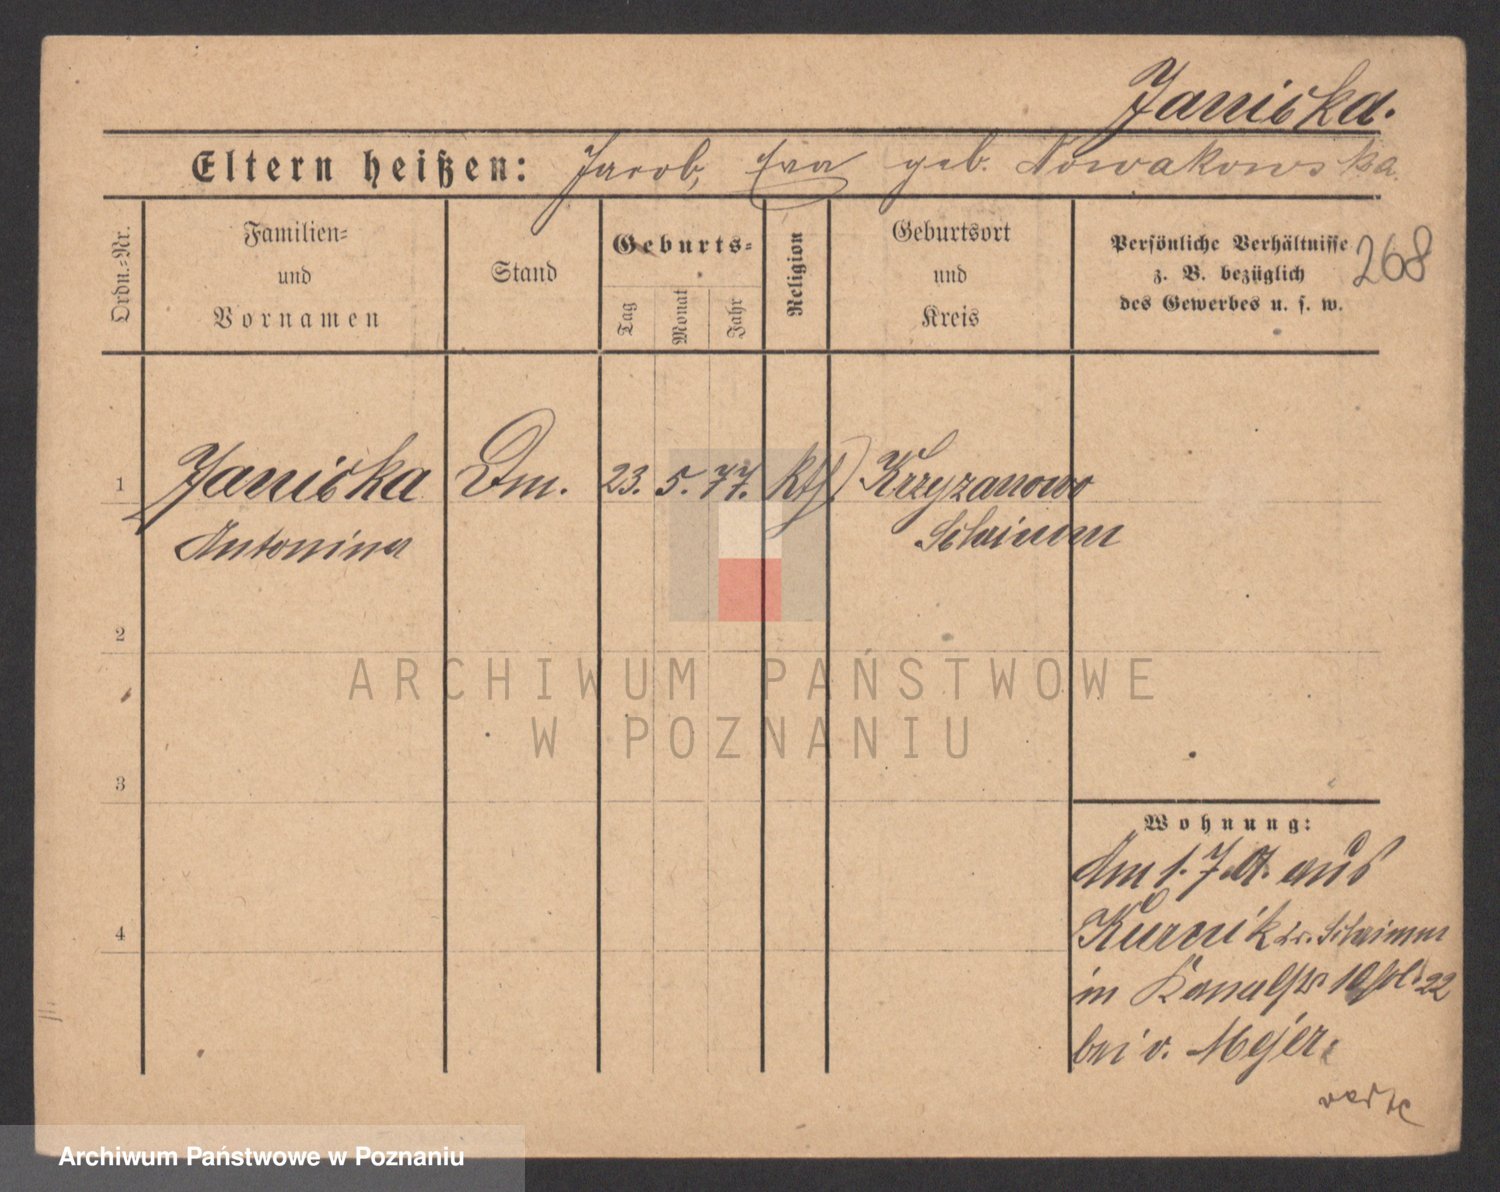 Janicka.
Eltern heißen: Jacob, Eva geb. Nowakowska.
Ordn.-Nr.
Familien-
und
Vornamen
Stand
Geburts-
Tag
Monat
Jahr
Religion
Geburtsort
und
Kreis
Persönliche Verhältnisse
z. B. bezüglich
des Gewerbes u. s. w.
268
1
Janicka
Antonina
Dm.
23. 5. 77.
Kth
Krzyzanowo
Schrimm
2
3
4
Wohnung:
Am 1. 7. 01. aus
Kurnik Kr. Schrimm
in Kanalstr 10 22
bei v. Mejer.
verte
ARCHIWUM PAŃSTWOWE
W POZNANIU
Archiwum Państwowe w Poznaniu